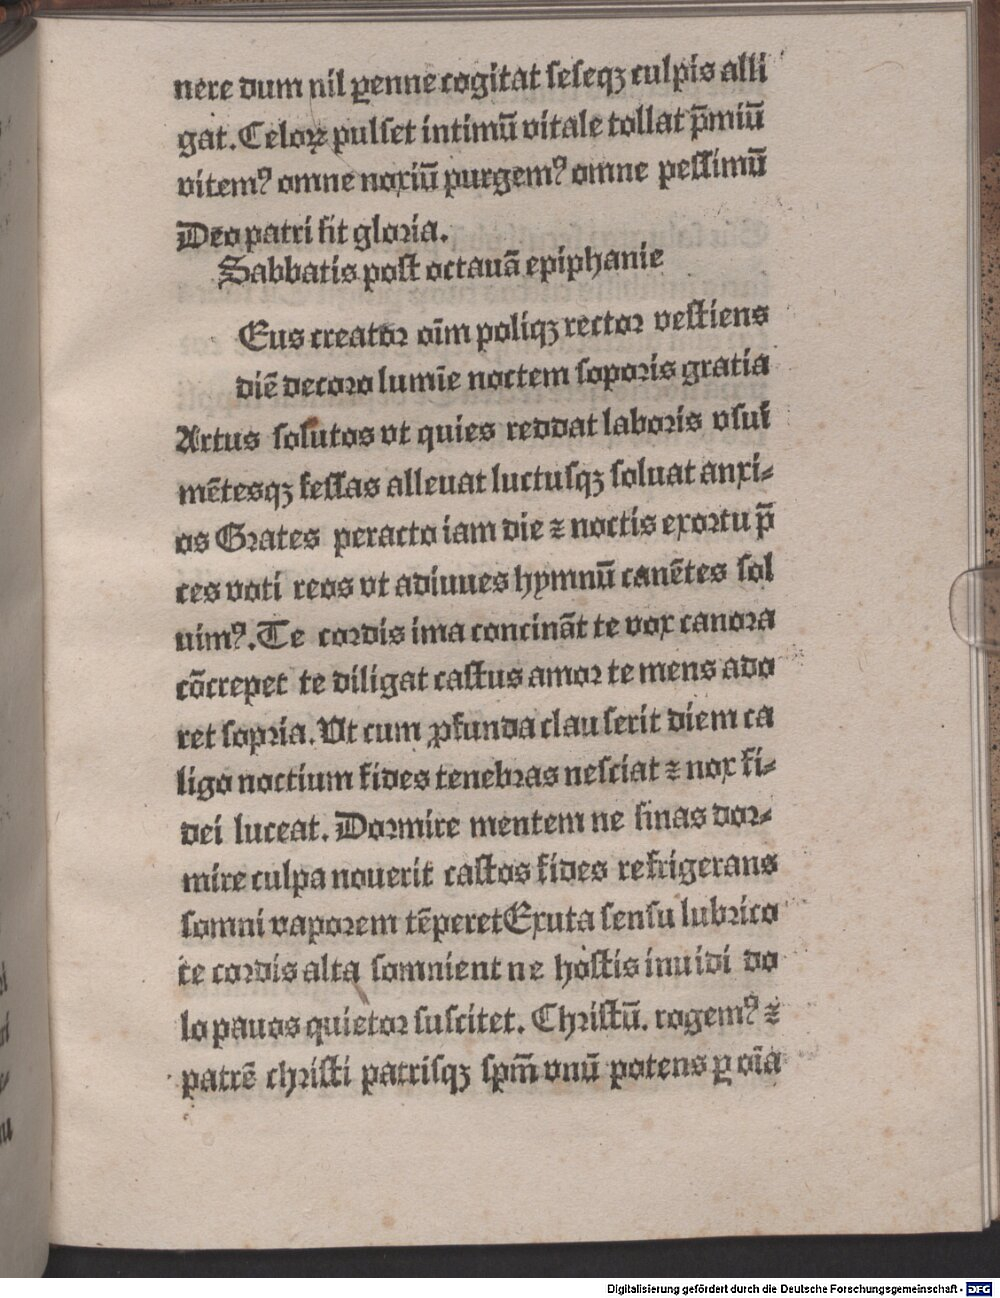 nere dum nil ꝑenne cogitat seseqꝫ culpis alli
gat. Celoꝝ pulset intimū vitale tollat p̄miū
vitemꝰ omne noxiū purgemꝰ omne pessimū
Deo patri sit gloria.
Sabbatis post octauā epiphanie
Eus creator oīm poliqꝫ rector vestiens
diē decoro lumīe noctem soporis gratia
Artus solutos vt quies reddat laboris vsui
mētesqꝫ fessas alleuat luctusqꝫ soluat anxi⸗
os Grates peracto iam die ⁊ noctis exortu p̄
ces voti reos vt adiuues hymnū canētes sol
uimꝰ. Te cordis ima concināt te vox canora
cōcrepet te diligat castus amor te mens ado
ret sopria. Ut cum ꝓfunda clauserit diem ca
ligo noctium fides tenebras nesciat ⁊ nox fi⸗
dei luceat. Dormire mentem ne sinas dor⸗
mire culpa nouerit castos fides refrigerans
somni vaporem tēperet Exuta sensu lubrico
te cordis alta somnient ne hostis inuidi do
lo pauos quietor suscitet. Christū. rogemꝰ ⁊
patrē christi patrisqꝫ spm̄ vnū potens ꝑ oīa
Digitalisierung gefördert durch die Deutsche Forschungsgemeinschaft - DFG